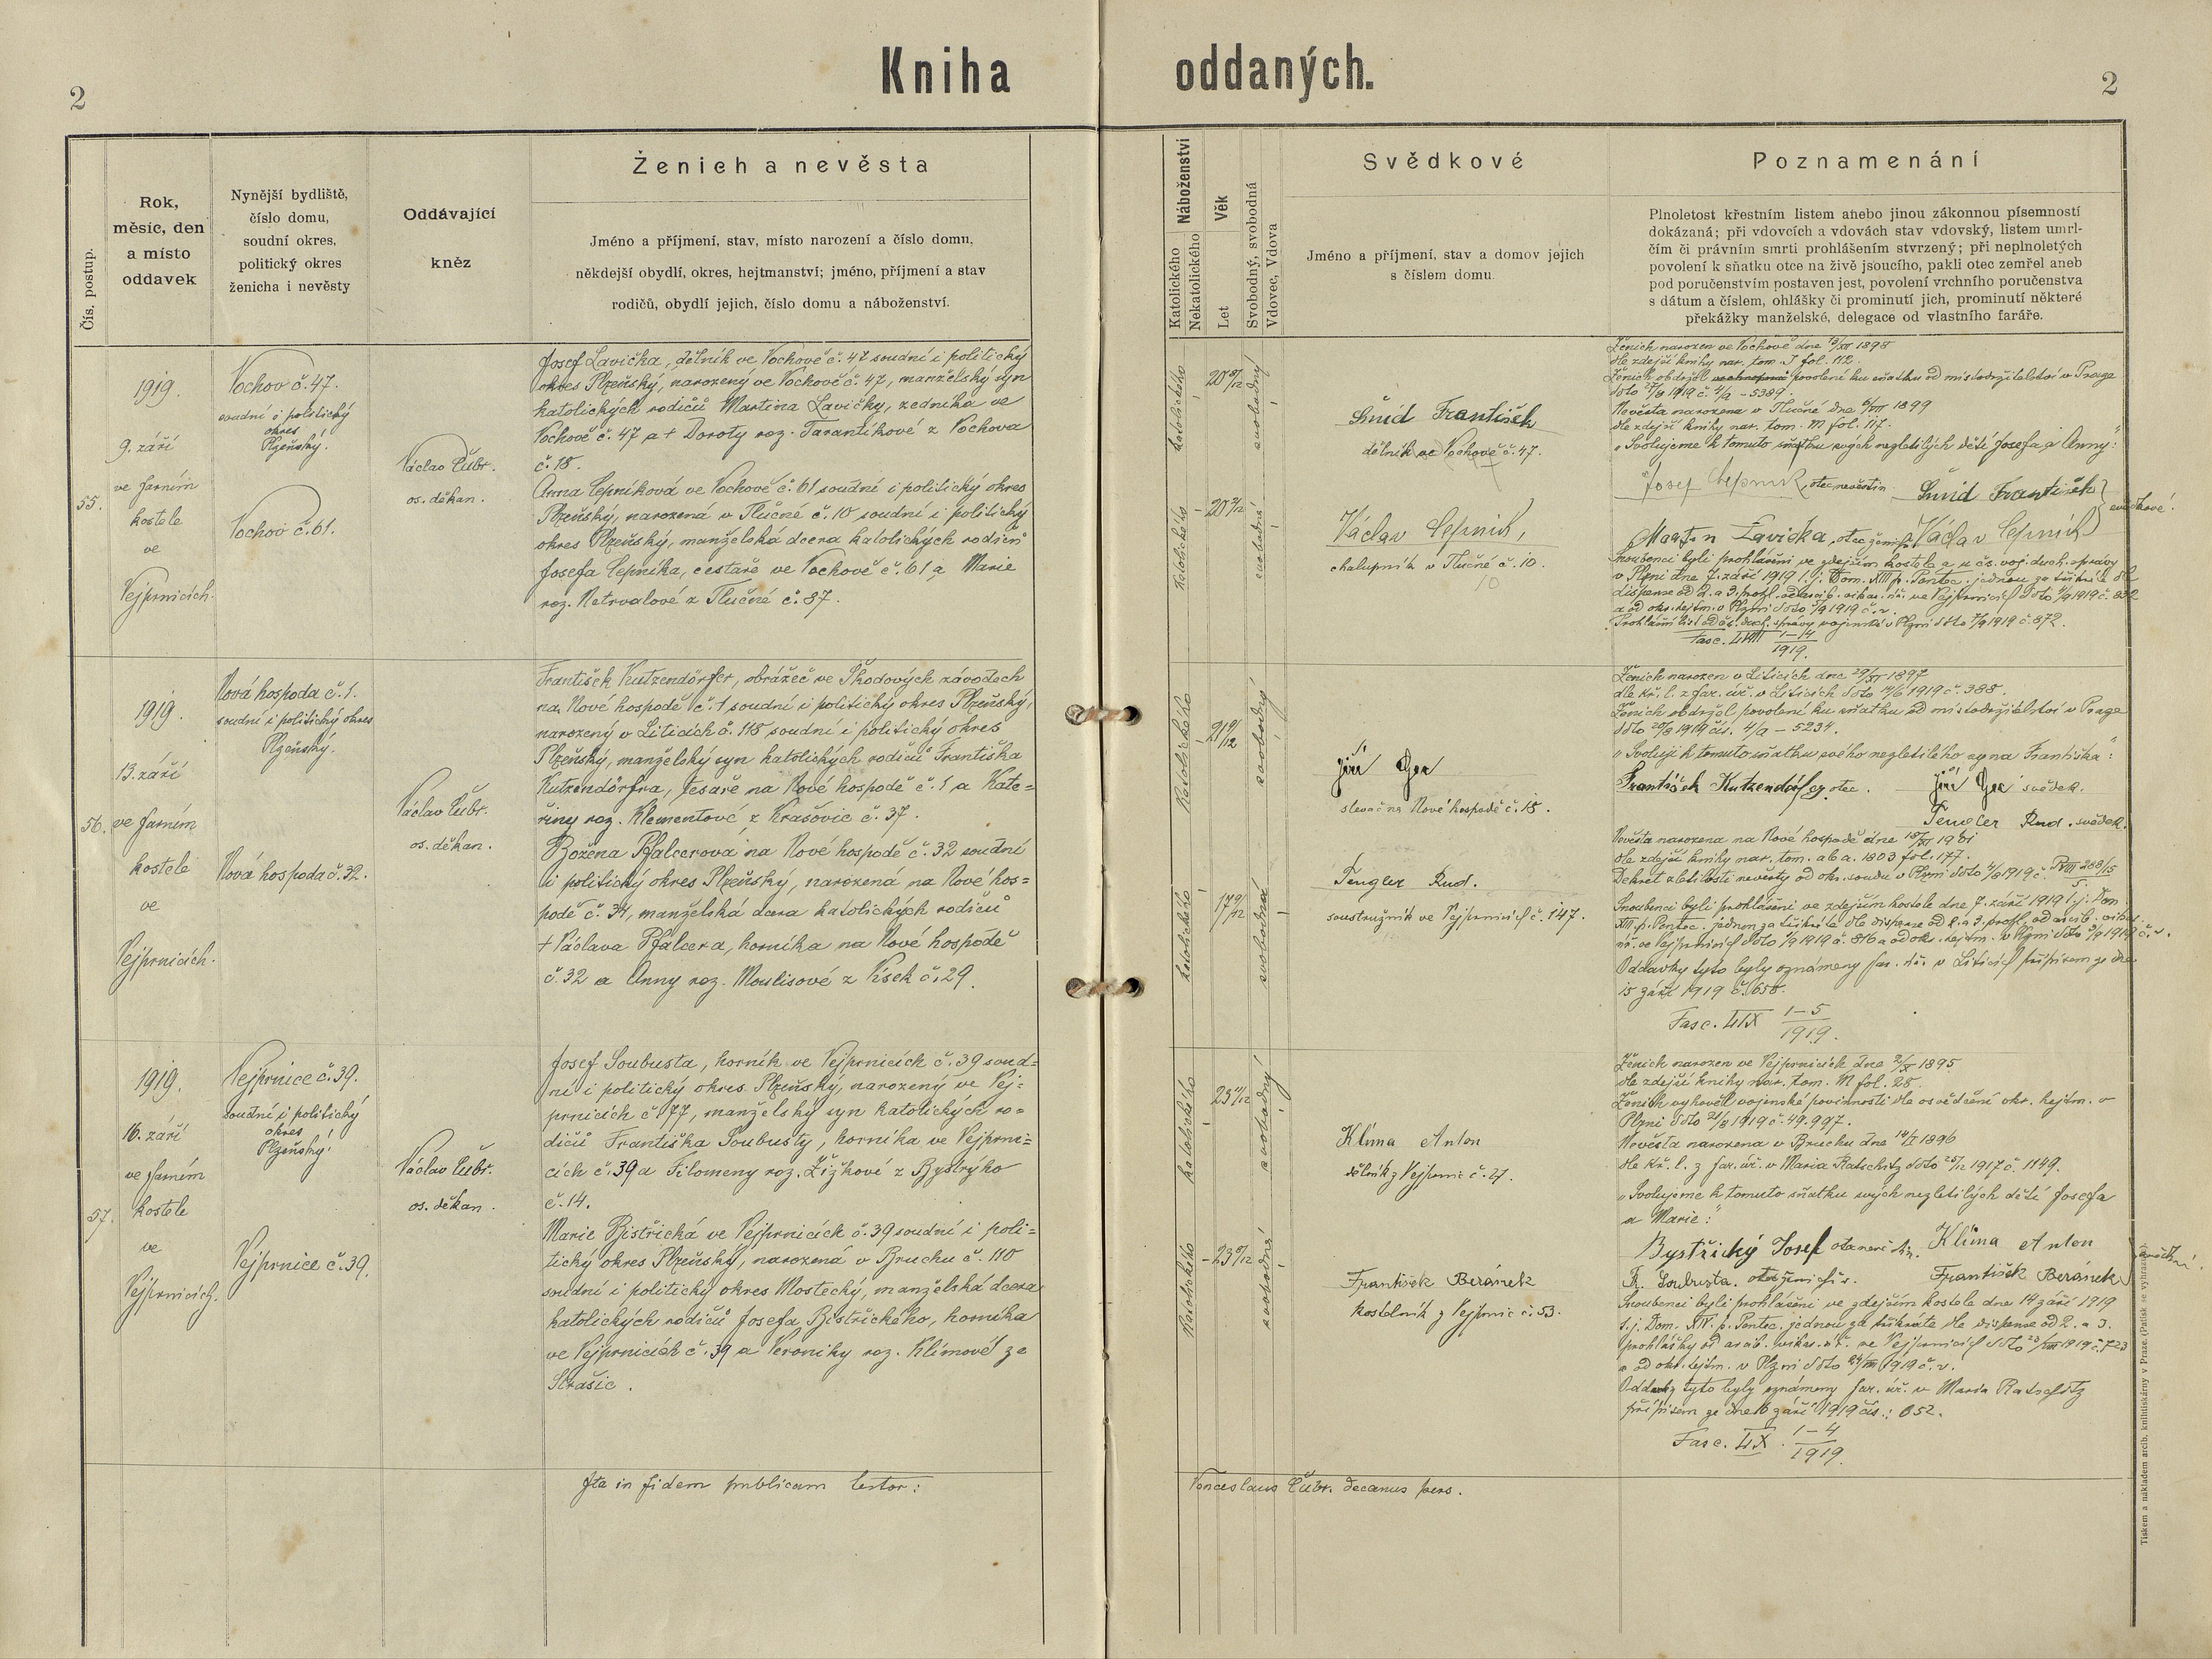 Kniha oddaných.
2
2
Čís. postup.
Rok,
měsíc, den
a místo
oddavek
Nynější bydliště,
číslo domu,
soudní okres,
politický okres
ženicha i nevěsty
Oddávající
kněz
Ženich a nevěsta
Jméno a příjmení, stav, místo narození a číslo domu,
někdejší obydlí, okres, hejtmanství; jméno, příjmení a stav
rodičů, obydlí jejich, číslo domu a náboženství.
Náboženství
Katolického
Nekatolického
Věk
Let
Svobodný, svobodná
Vdovec, Vdova
Svědkové
Jméno a příjmení, stav a domov jejich
s číslem domu.
Poznamenání
Plnoletost křestním listem anebo jinou zákonnou písemností
dokázaná; při vdovcích a vdovách stav vdovský, listem umrl-
čím či právním smrti prohlášením stvrzený; při neplnoletých
povolení k sňatku otce na živě jsoucího, pakli otec zemřel aneb
pod poručenstvím postaven jest, povolení vrchního poručenstva
s dátum a číslem, ohlášky či prominutí jich, prominutí některé
překážky manželské, delegace od vlastního faráře.
55.
1919.
9. září
ve farním
kostele
ve
Vejprnicích.
Vochov č. 47.
soudní i politický
okres
Plzeňský.
Vochov č. 61.
Václav Čubr.
os. děkan.
Josef Lavička, dělník ve Vochově č. 47 soudní i politický
okres Plzeňský, narozený ve Vochově č. 47, manželský syn
katolických rodičů Martina Lavičky, zedníka ve
Vochově č. 47 a + Doroty roz. Tarantíkové z Vochova
č. 18.
Anna Čepníková ve Vochově č. 61 soudní i politický okres
Plzeňský, narozená v Tlučné č. 10 soudní i politický
okres Plzeňský, manželská dcera katolických rodičů
Josefa Čepníka, cestaře ve Vochově č. 61 a Marie
roz. Netrvalové z Tlučné č. 87.
katolického
svobodný
katolického
svobodná
Šmíd František
dělník ve Vochově č. 47.
Václav Čepník,
chalupník v Tlučné č. 10.
10
Ženich narozen ve Vochově dne 1898
dle zdejší knihy nar. tom. I fol. 112.
Ženich obdržel povolení ku sňatku od místodržitelství v Praze
ddto 1919 č. 4/a - 5389.
Nevěsta narozena v Tlučné dne 1899
dle zdejší knihy nar. tom. M fol. 117.
„Svolujeme k tomuto sňatku svých nezletilých dětí Josefa a Anny:"
Josef Čepník, otec nevěstin. Šmíd František
Martin Lavička, otec ženicha. Václav Čepník } svědkové.
Snoubenci byli prohlášeni ve zdejším kostele a u čs. voj. duch. správy
v Plzni dne 7. září 1919 t. j. Dom. XIII p. Pentec. jednou za třikráte dle
dispense od 2. a 3. prohl. od arcib. vikar. úř. ve Vejprnicích ddto 1919 č. 832
a od okr. hejtm. v Plzni ddto 1919 č. v.
Prohlášní list od čs. duch. správy vojenské v Plzni ddto 1919 č. 872.
1-4
1919.
56.
1919.
13. září
ve farním
kostele
ve
Vejprnicích.
Nová hospoda č. 1.
soudní i politický okres
Plzeňský.
Nová hospoda č. 32.
Václav Čubr.
os. děkan.
František Kutzendörfer, obrážeč ve Škodových závodech
na Nové hospodě č. 1 soudní i politický okres Plzeňský,
narozený v Liticích č. 118 soudní i politický okres
Plzeňský, manželský syn katolických rodičů Františka
Kutzendörfra, tesaře na Nové hospodě č. 1 a Kate=
řiny roz. Klementové z Krašovic č. 37.
Božena Pfalcerová na Nové hospodě č. 32 soudní
i politický okres Plzeňský, narozená na Nové hos=
podě č. 34, manželská dcera katolických rodičů
+ Václava Pfalcera, horníka na Nové hospodě
č. 32 a Anny roz. Moulisové z Vísek č. 29.
katolického
svobodný
katolického
svobodná
Jiří Gea
slevač na Nové hospodě č. 18.
Tengler Rud.
soustružník ve Vejprnicích č. 147.
Ženich narozen v Liticích dne 1897
dle kř. l. z far. úř. v Liticích ddto 1919 č. 388.
Ženich obdržel povolení ku sňatku od místodržitelství v Praze
ddto 1919 čís. 4/a - 5234.
„Svoluji k tomuto sňatku svého nezletilého syna Františka":
František Kutzendörfer otec. Jiří Gea svědek.
Tengler Rud. svědek.
Nevěsta narozena na Nové hospodě dne 1901
dle zdejší knihy nar. tom. ab a. 1803 fol. 177.
Dekret zletilosti nevěsty od okr. soudu v Plzni ddto 1919 č. P VIII 288/15
Snoubenci byli prohlášeni ve zdejším kostele dne 7. září 1919 t. j. Dom.
XIII p. Pentec. jednou za třikráte dle dispense od 2. a 3. prohl. od arcib. vikar.
úř. ve Vejprnicích ddto 1919 č. 816 a od okr. hejtm. v Plzni ddto 1919 č. v.
Oddavky tyto byly oznámeny far. úř. v Liticích přípisem ze dne
15 září 1919 č. 658.
1-5
1919.
57.
1919.
16. září
ve farním
kostele
ve
Vejprnicích.
Vejprnice č. 39.
soudní i politický
okres
Plzeňský.
Vejprnice č. 39.
Václav Čubr.
os. děkan.
Josef Soubusta, horník ve Vejprnicích č. 39 soud=
ní i politický okres Plzeňský, narozený ve Vej=
prnicích č. 77, manželský syn katolických ro=
dičů Františka Soubusty, horníka ve Vejprni=
cích č. 39 a Filomeny roz. Žižkové z Bystrýho
č. 14.
Marie Bistřická ve Vejprnicích č. 39 soudní i poli=
tický okres Plzeňský, narozená v Bruchu č. 110
soudní i politický okres Mostecký, manželská dcera
katolických rodičů Josefa Bistřického, horníka
ve Vejprnicích č. 39 a Veroniky roz. Klímové ze
Strašic.
katolického
svobodný
katolického
svobodná
Klíma Anton
dělník z Vejprnic č. 27.
František Beránek
kostelník z Vejprnic č. 53.
Ženich narozen ve Vejprnicích dne 1895
dle zdejší knihy nar. tom. M fol. 28.
Ženich vyhověl vojenské povinnosti dle osvědčení okr. hejtm. v
Plzni ddto 1919 č. 49.997.
Nevěsta narozena v Bruchu dne 1896
dle kř. l. z far. úř. v Maria Ratschitz ddto 1917 č. 1149.
„Svolujeme k tomuto sňatku svých nezletilých dětí Josefa
a Marie:"
Bystřický Josef otec nevěstin. Klíma Anton
Fr. Soubusta. otec ženichův. František Beránek
Snoubenci byli prohlášeni ve zdejším kostele dne 14 září 1919
t. j. Dom. XIV. p. Pentec. jednou za třikráte dle dispense od 2. a 3.
prohlášky od arcib. vikar. úř. ve Vejprnicích ddto 1919 č. 723
a od okr. hejtm. v Plzni ddto 1919 č. v.
Oddavky tyto byly oznámeny far. úř. v Maria Ratschitz
přípisem ze dne 16 září 1919 čís.: 652.
1-4
1919.
Ita in fidem publicam testor:
Venceslaus Čubr. decanus pers.
Tiskem a nákladem arcib. knihtiskárny v Praze. (Patisk se vyhrazuje.)